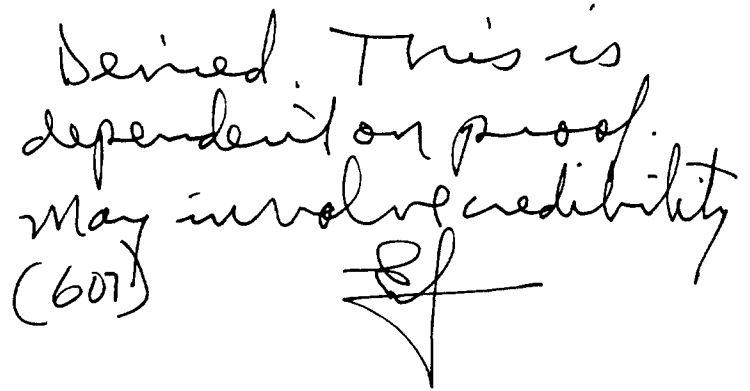 Denied. This is
dependent on proof.
May involve credibility
(607) EJ